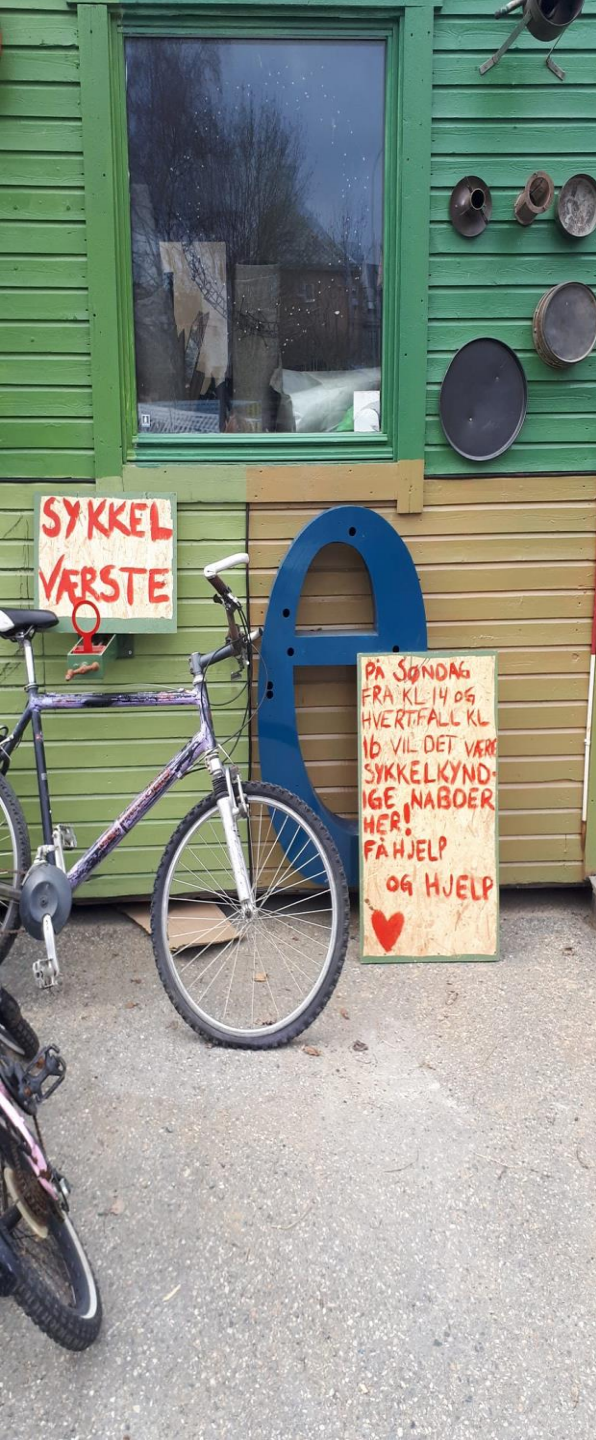 SYKKEL
VÆRSTE
e
PÅ SØNDAG
FRA KL 14 OG
HVERTFALL KL
16 VIL DET VÆRE
SYKKELKYND-
IGE NABOER
HER!
FÅ HJELP
OG HJELP